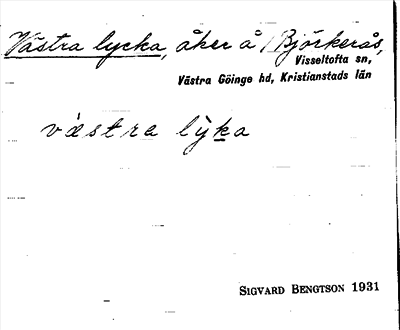 Västra lycka, åker å / Björkerås,
Visseltofta sn,
Västra Göinge hd, Kristianstads län
væstra lyka
SIGVARD BENGTSON 1931